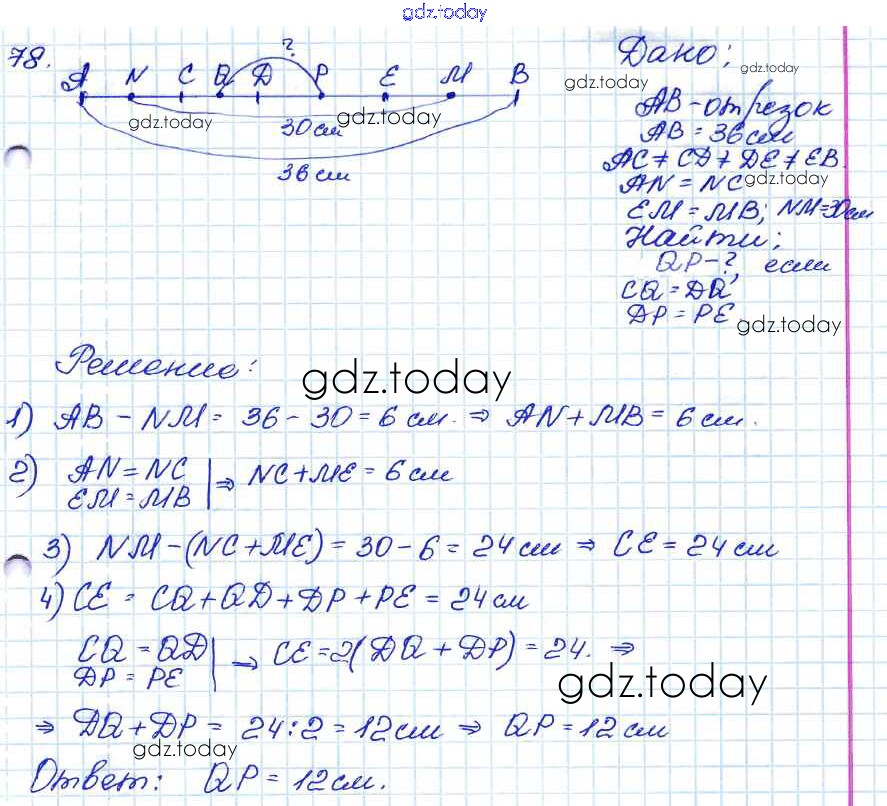 gdz.today
78.
?
Дано:
A N C Q D P E M B
gdz.today
AB - отрезок
gdz.today
gdz.today
30 см
gdz.today
AB = 36 см
36 см
AC ≠ CD ≠ DE ≠ EB.
AN = NC
gdz.today
EM = MB; NM = 30 см
Найти:
QP - ?, если
CQ = DQ
DP = PE
gdz.today
Решение:
gdz.today
1) AB - NM = 36 - 30 = 6 см. ⇒ AN + MB = 6 см.
2) AN = NC
EM = MB | ⇒ NC + ME = 6 см
3) NM - (NC + ME) = 30 - 6 = 24 см ⇒ CE = 24 см
4) CE = CQ + QD + DP + PE = 24 см
CQ = QD
DP = PE | → CE = 2(DQ + DP) = 24. ⇒
gdz.today
⇒ DQ + DP = 24 : 2 = 12 см ⇒ QP = 12 см
gdz.today
Ответ: QP = 12 см.